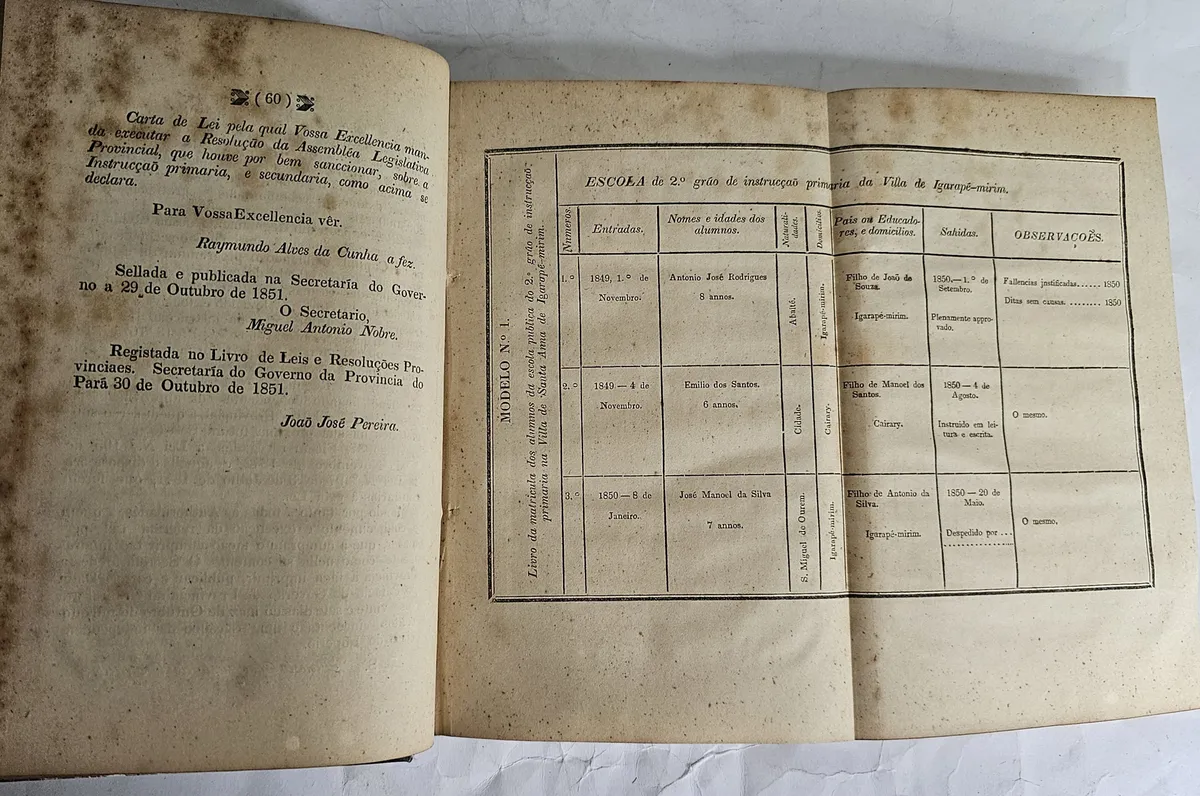 ( 60 )
Carta de Lei pela qual Vossa Excellencia man-
da executar a Resolução da Assembléa Legislativa
Provincial, que houve por bem sanccionar, sobre a
Instrucçaõ primaria, e secundaria, como acima se
declara.
Para VossaExcellencia vêr.
Raymundo Alves da Cunha a fez.
Sellada e publicada na Secretaría do Gover-
no a 29 de Outubro de 1851.
O Secretario,
Miguel Antonio Nobre.
Registada no Livro de Leis e Resoluções Pro-
vinciaes. Secretaría do Governo da Provincia do
Pará 30 de Outubro de 1851.
Joaõ José Pereira.
MODELO N.º 1.
Livro da matricula dos alumnos da escola publica do 2.º gráo de instrucçaõ
primaria na Villa de Santa Anna de Igarapé-mirim.
ESCOLA de 2.º gráo de instrucçaõ primaria da Villa de Igarapé-mirim.
Numeros.
Entradas.
Nomes e idades dos
alumnos.
Naturali-
dades.
Domicilios.
Pais ou Educado-
res, e domicilios.
Sahidas.
OBSERVAÇOẼS.
1.º
1849, 1.º de
Novembro.
Antonio José Rodrigues
8 annos.
Abaité.
Igarapé-mirim.
Filho de Joaõ de
Souza.
Igarapé-mirim.
1850.—1.º de
Setembro.
Plenamente appro-
vado.
Fallencias justificadas...... 1850
Ditas sem causas. ........ 1850
2.º
1849 — 4 de
Novembro.
Emilio dos Santos.
6 annos.
Cidade.
Cairary.
Filho de Manoel dos
Santos.
Cairary.
1850 — 4 de
Agosto.
Instruido em lei-
tura e escrita.
O mesmo.
3.º
1850 — 8 de
Janeiro.
José Manoel da Silva
7 annos.
S. Miguel de Ourem.
Igarapé-mirim.
Filho de Antonio da
Silva.
Igarapé-mirim.
1850 — 20 de
Maio.
Despedido por ...
..................
O mesmo.